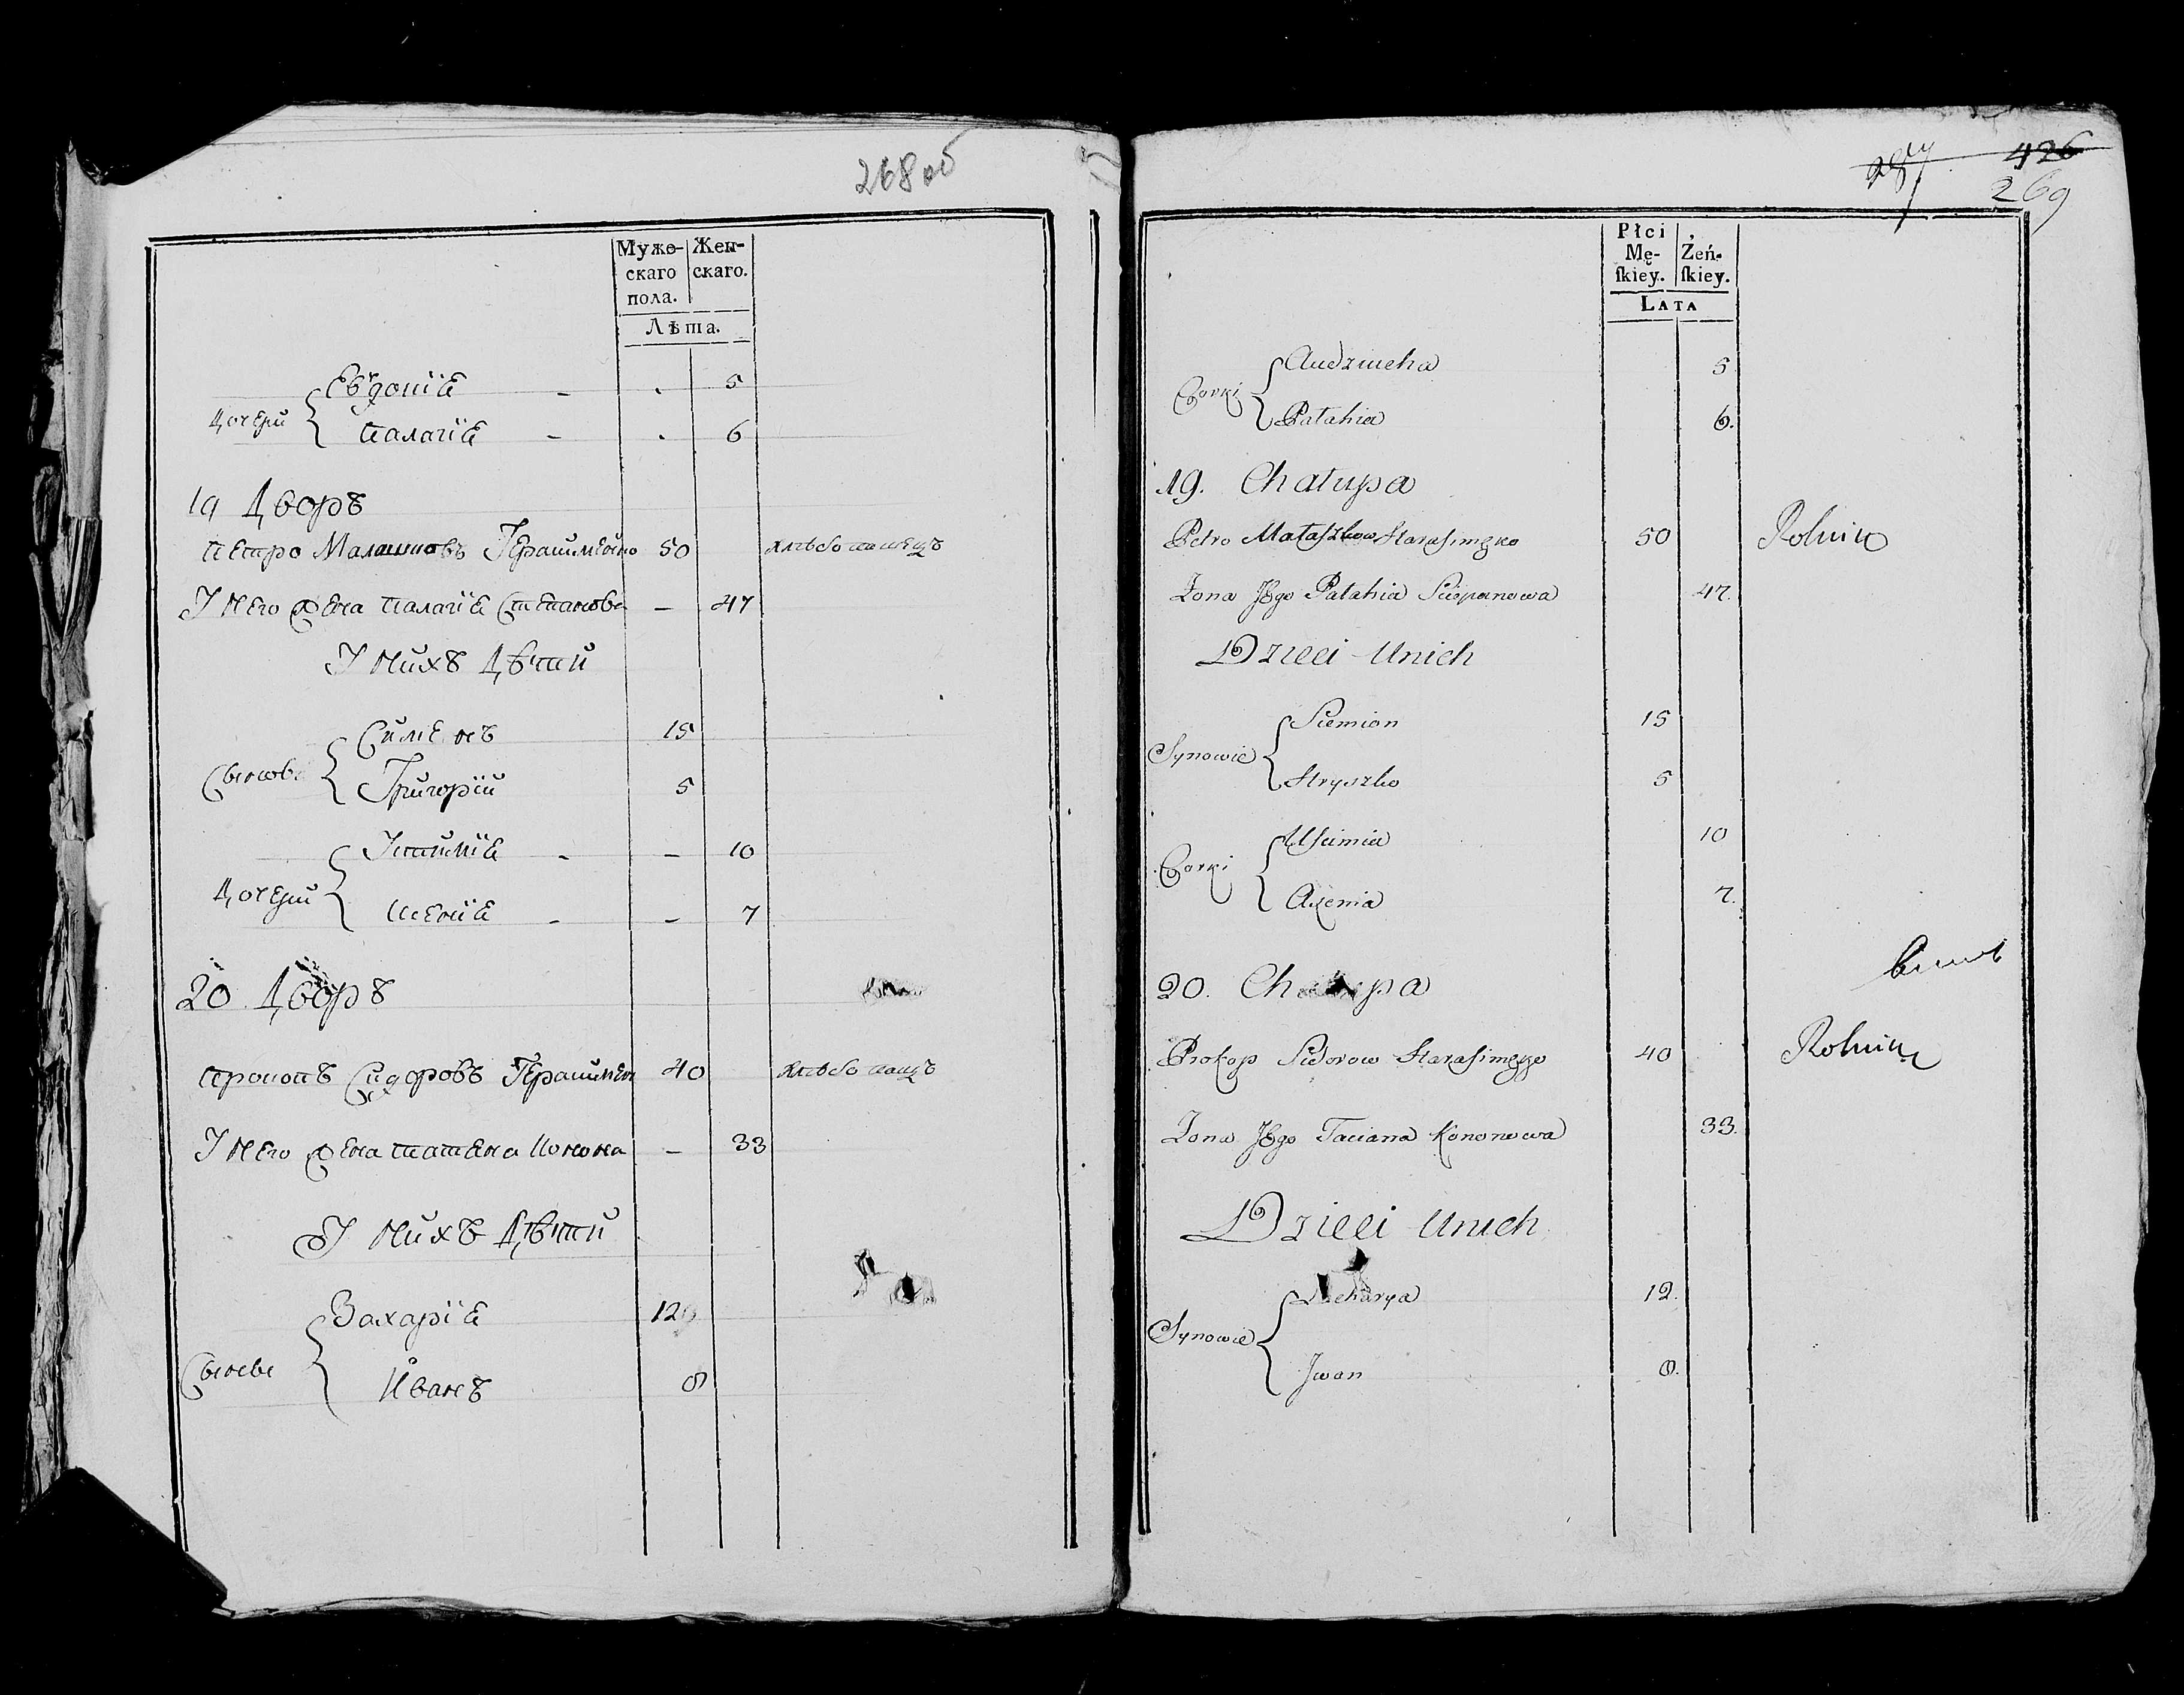 268 об
Мужескаго пола. Женскаго.
Лѣта.
Дочери
Евдокія - . 5
Палагія - . 6
19 Дворъ
Петро Малашковъ Герасименко 50 хлебопашецъ
У него жена Палагія Степанова — 47
У нихъ Дѣти
Сынове
Сименъ 15
Григорій 5
Дочери
Устимія - — 10
Ксенія - — 7
20 Дворъ
Прокопъ Сидоровъ Герасименко 40 хлебопашецъ
У него жена татьяна Конона — 33
У нихъ Дѣти
Сынове
Захарія 12
Иванъ 8
426
269
Płci Męſkiey. Żeńſkiey.
LATA
Corki
Audziucha 5
Pałahia 6.
19. Chałupa
Petro Małaszkow Harasimęko 50 Rolnik
Zona Jego Pałahia Sciepanowa 47.
Dzieci Unich
Synowie
Siemion 15
Hryszko 5
Corki
Uscimia 10
Axenia 7.
20. Chałupa
Prokop Sidorow Harasimęko 40 Rolnik
Zona Jego Taciana Kononowa 33.
Dzieci Unich
Synowie
Zacharya 12.
Jwan 8.